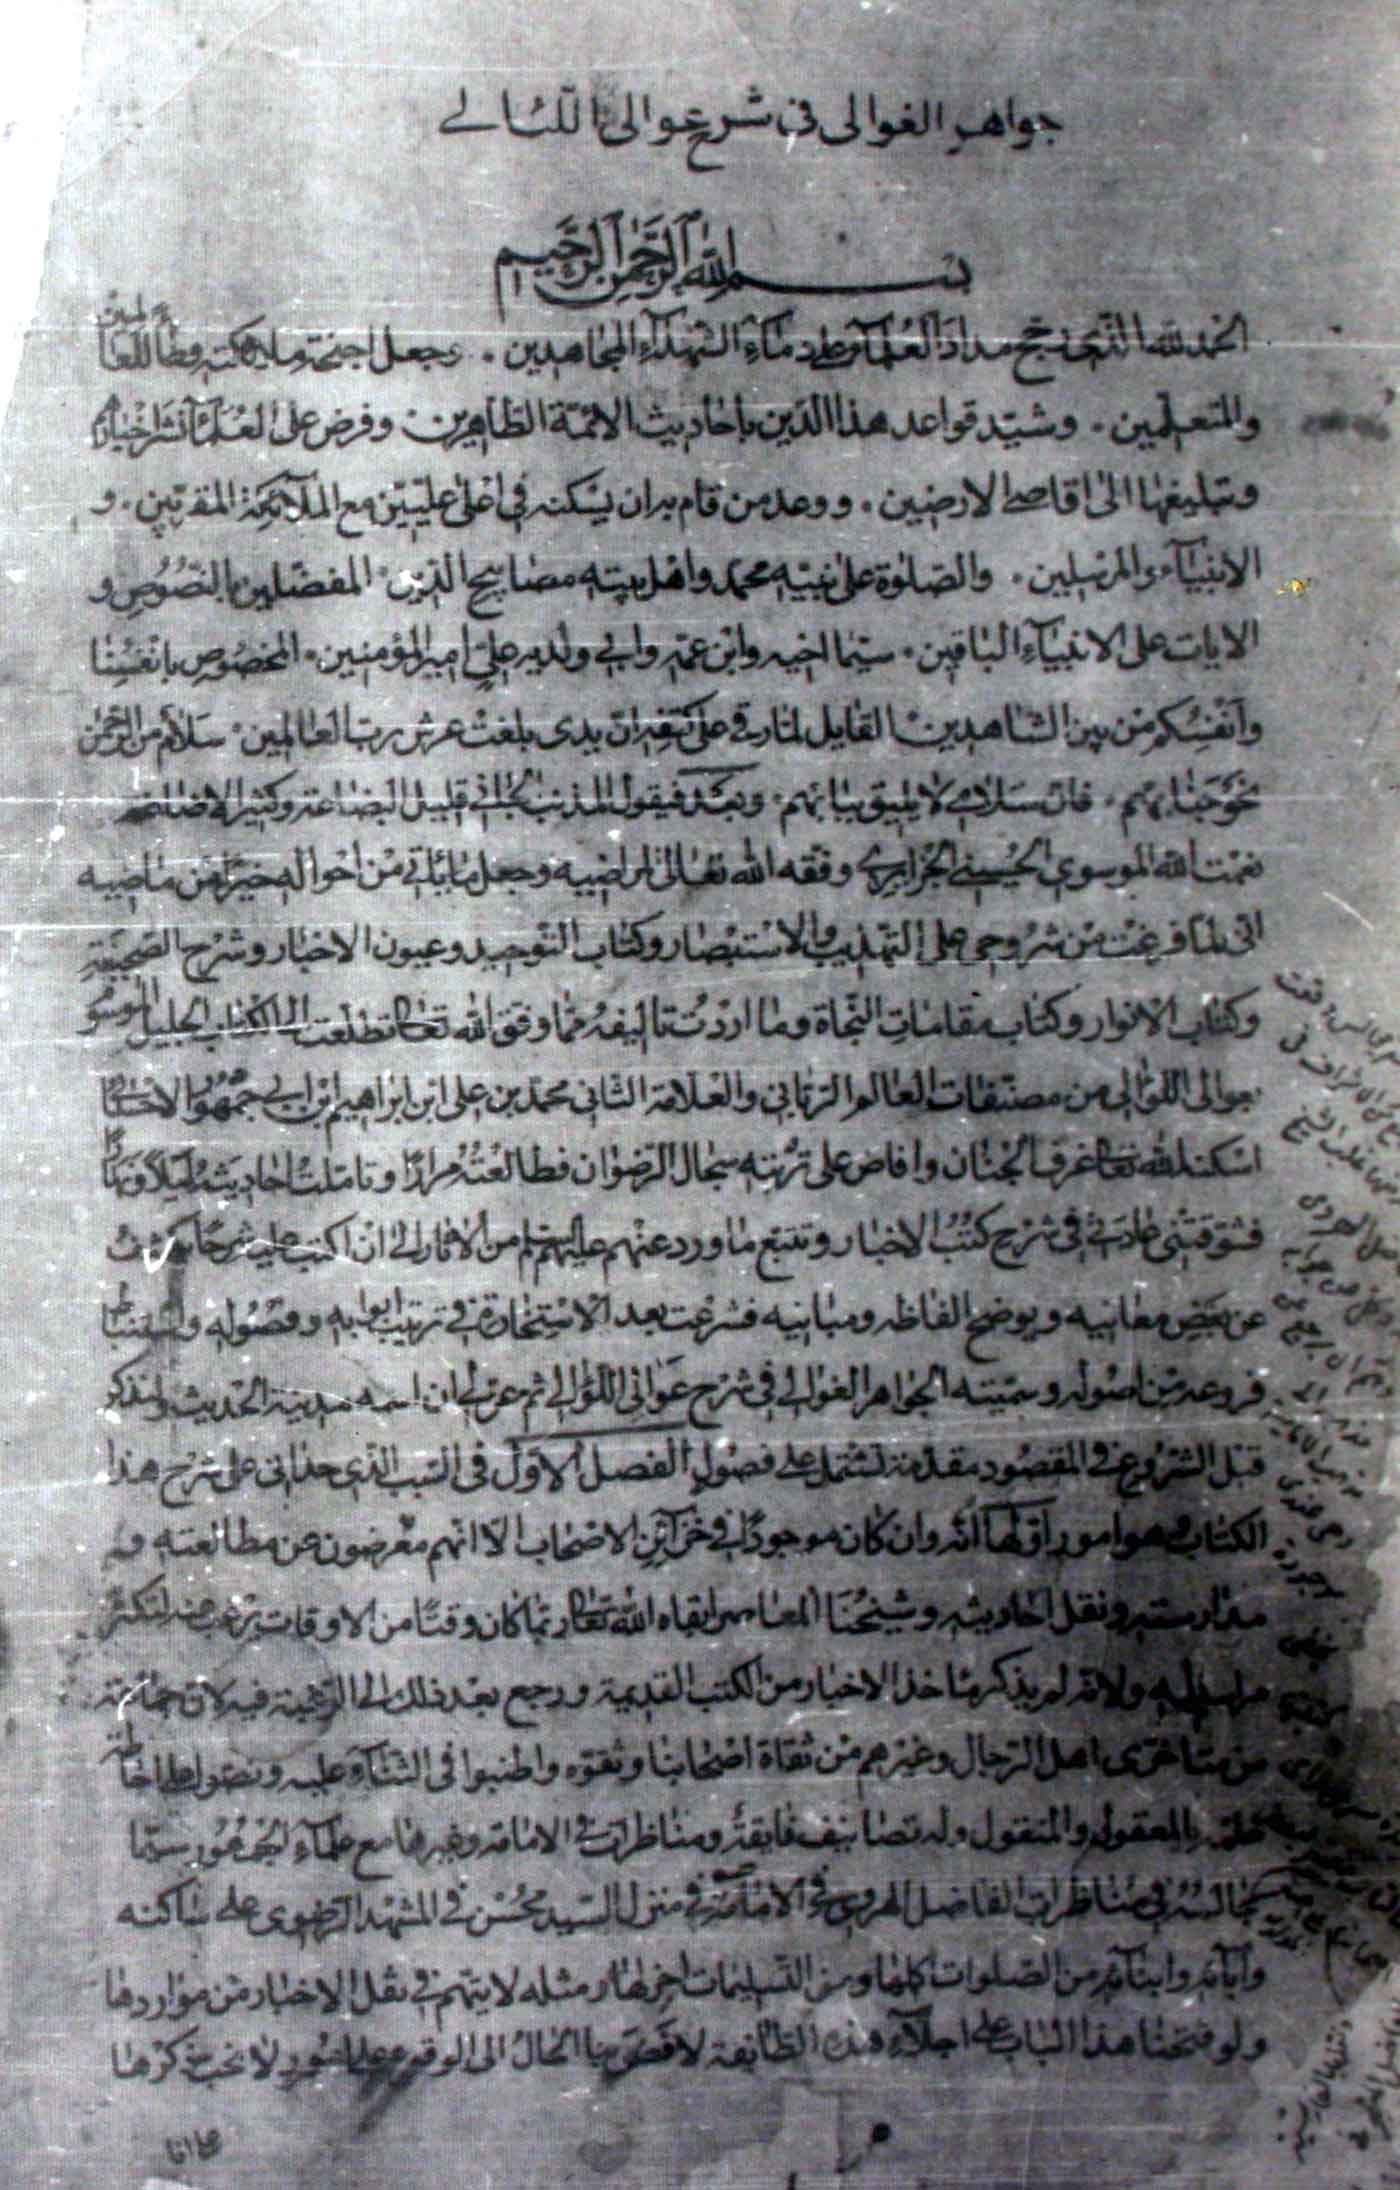 جواهر الغوالى فى شرح عوالى اللئالے
بسم الله الرحمن الرحيم
الحمد لله الذى رجح مداد العلماء على دماء الشهداء المجاهدين . وجعل اجنحة ملايكته وطاء للعالمين
والمتعلمين . وشيد قواعد هذا الدين باحاديث الائمة الطاهرين . وفرض على العلماء نشر اخبارهم
وتبليغها الى اقاصى الارضين . ووعد من قام به ان يسكنه فى اعلى عليين مع الملائكة المقربين . و
الانبياء والمرسلين . والصلوة على نبيه محمد واهل بيته مصابيح الدين . المفضلين بالنصوص و
الايات على الانبياء الباقين . سيما اخيه وابن عمه وابى ولديه على امير المؤمنين . المخصوص بانفسنا
وانفسكم من بين الشاهدين القايل لما رقى على كتفه ان يدى بلغت عرش رب العالمين . سلام من الرحمن
نحو جنابهم . فان سلامى لا يليق ببابهم . وبعد فيقول المذنب الجانى قليل البضاعة وكثير الاضاعة
نعمت الله الموسوى الحسينى الجزايرى وفقه الله تعالى لمراضيه وجعل ما ياتى من احواله خيرا من ماضيه
انى لما فرغت من شروحى على التهذيب والاستبصار وكتاب التوحيد وعيون الاخبار وشرح الصحيفة
وكتاب الانوار وكتاب مقامات النجاة وما اردت تاليفه مما وفق الله تعالى تطلعت الى الكتاب الجليل الموسوم
بعوالى اللئالى من مصنفات العالم الربانى والعلامة الثانى محمد بن على ابن ابراهيم ابن ابى جمهور الاحسائى
اسكنه الله تعالى غرف الجنان وافاض على تربته سجال الرضوان فطالعته مرارا وتاملت احاديثه ليلا ونهارا
فشوقتنى عادتى فى شرح كتب الاخبار وتتبع ما ورد عنهم عليهم السلام من الاثار الى ان اكتب عليه شرحا يكشف
عن بعض معانيه ويوضح الفاظه ومبانيه فشرعت بعد الاستخارة فى ترتيب ابوابه وفصوله واستنباط
فروعه من اصوله وسميته الجواهر الغوالى فى شرح عوالى اللئالى ثم عن لى ان اسمه مدينة الحديث ولنذكر
قبل الشروع فى المقصود مقدمة تشتمل على فصول الفصل الاول فى السبب الذى حدانى على شرح هذا
الكتاب وهو امور اولها انه وان كان موجودا فى خزائن الاصحاب الا انهم معرضون عن مطالعته و
مدارسته ونقل احاديثه وشيخنا المعاصر ابقاه الله تعالى ربما كان وقتا من الاوقات يرغب عنه لتكثر
مراسيله ولانه لم يذكر مآخذ الاخبار من الكتب القديمة ورجع بعد ذلك الى الرغبة فيه لان جماعة
من متاخرى اهل الرجال وغيرهم من ثقاة اصحابنا وثقوه واطنبوا فى الثناء عليه ونصوا على احاطة
علمه بالمعقول والمنقول وله تصانيف فايقة ومناظرات فى الامامة وغيرها مع علماء الجمهور سيما
مجالسه فى مناظرات الفاضل الهروى فى الامامة فى منزل السيد محسن فى المشهد الرضوى على ساكنه
وآبائه وابنائه من الصلوات اكملها ومن التسليمات اجزلها ومثله لا يتهم فى نقل الاخبار من مواردها
ولو فتحنا هذا الباب على اجلاء هذه الطائفة لافضى بنا الحال الى الوقوع على امور لا نحب ذكرها